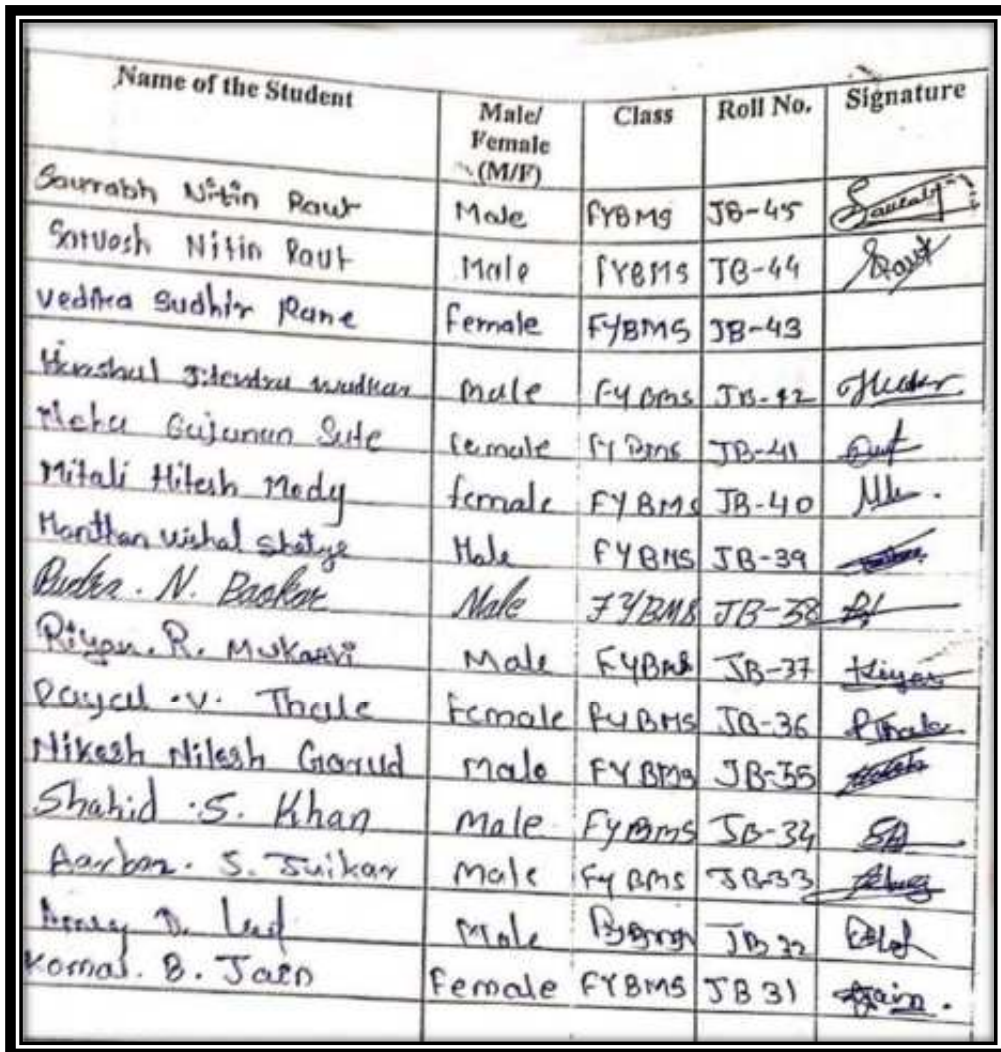 Name of the Student Male/ Female (M/F) Class Roll No. Signature
Saurabh Nitin Raut Male FYBMS JB-45 Saurabh
Sarvesh Nitin Raut Male FYBMS JB-44 SRaut
Vedika Sudhir Rane female FYBMS JB-43
Hanshul Jitendra wadkar male FYBMS JB-42
Neha Gajanan Sute female FYBMS JB-41
Mitali Hitesh Mody female FYBMS JB-40
Manthan vishal Shetye Male FYBMS JB-39
N. Male FYBMS JB-38
Riyan. R. Mukadvi Male FYBMS JB-37 Riyan
Payal .V. Thale Female FYBMS JB-36 PThale
Nikesh Nilesh Garud male FYBMS JB-35
Shahid .S. Khan male FYBMS JB-34
S. Juikar male FYBMS JB-33
D. Male JB 32
Komal. B. Jain Female FYBMS JB 31 Jain.